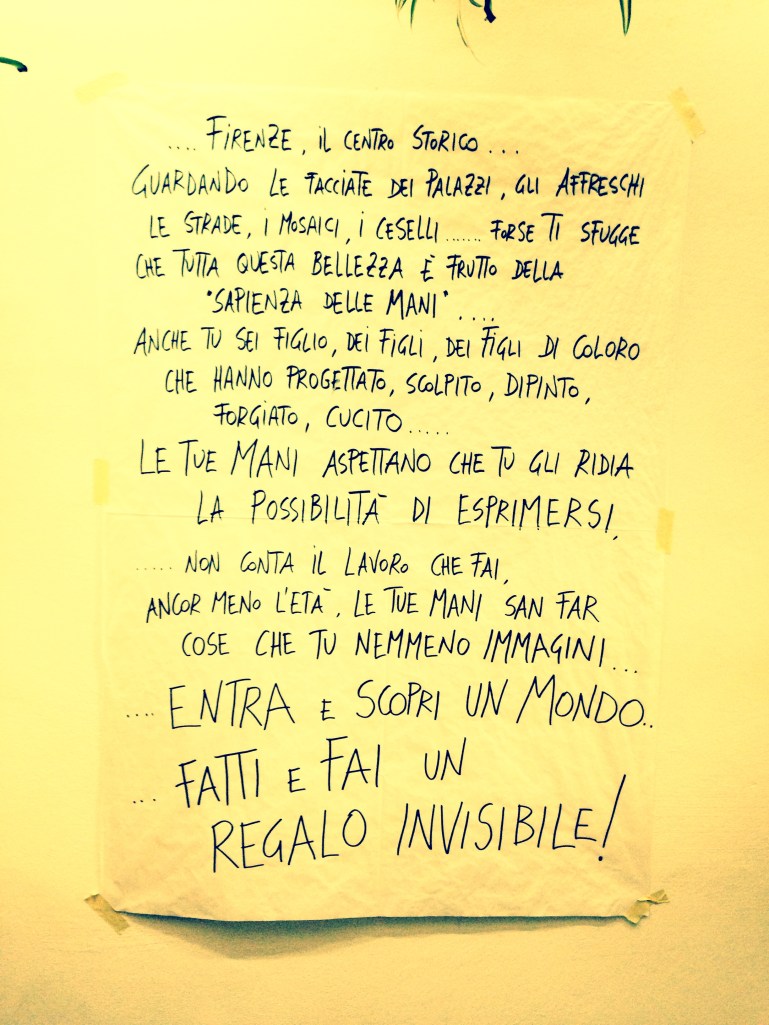 .... FIRENZE, IL CENTRO STORICO ...
GUARDANDO LE FACCIATE DEI PALAZZI, GLI AFFRESCHI
LE STRADE, I MOSAICI, I CESELLI ....... FORSE TI SFUGGE
CHE TUTTA QUESTA BELLEZZA È FRUTTO DELLA
"SAPIENZA DELLE MANI" ....
ANCHE TU SEI FIGLIO, DEI FIGLI, DEI FIGLI DI COLORO
CHE HANNO PROGETTATO, SCOLPITO, DIPINTO,
FORGIATO, CUCITO.....
LE TUE MANI ASPETTANO CHE TU GLI RIDIA
LA POSSIBILITÀ DI ESPRIMERSI.
..... NON CONTA IL LAVORO CHE FAI,
ANCOR MENO L'ETÀ, LE TUE MANI SAN FAR
COSE CHE TU NEMMENO IMMAGINI...
.... ENTRA E SCOPRI UN MONDO..
... FATTI E FAI UN
REGALO INVISIBILE!